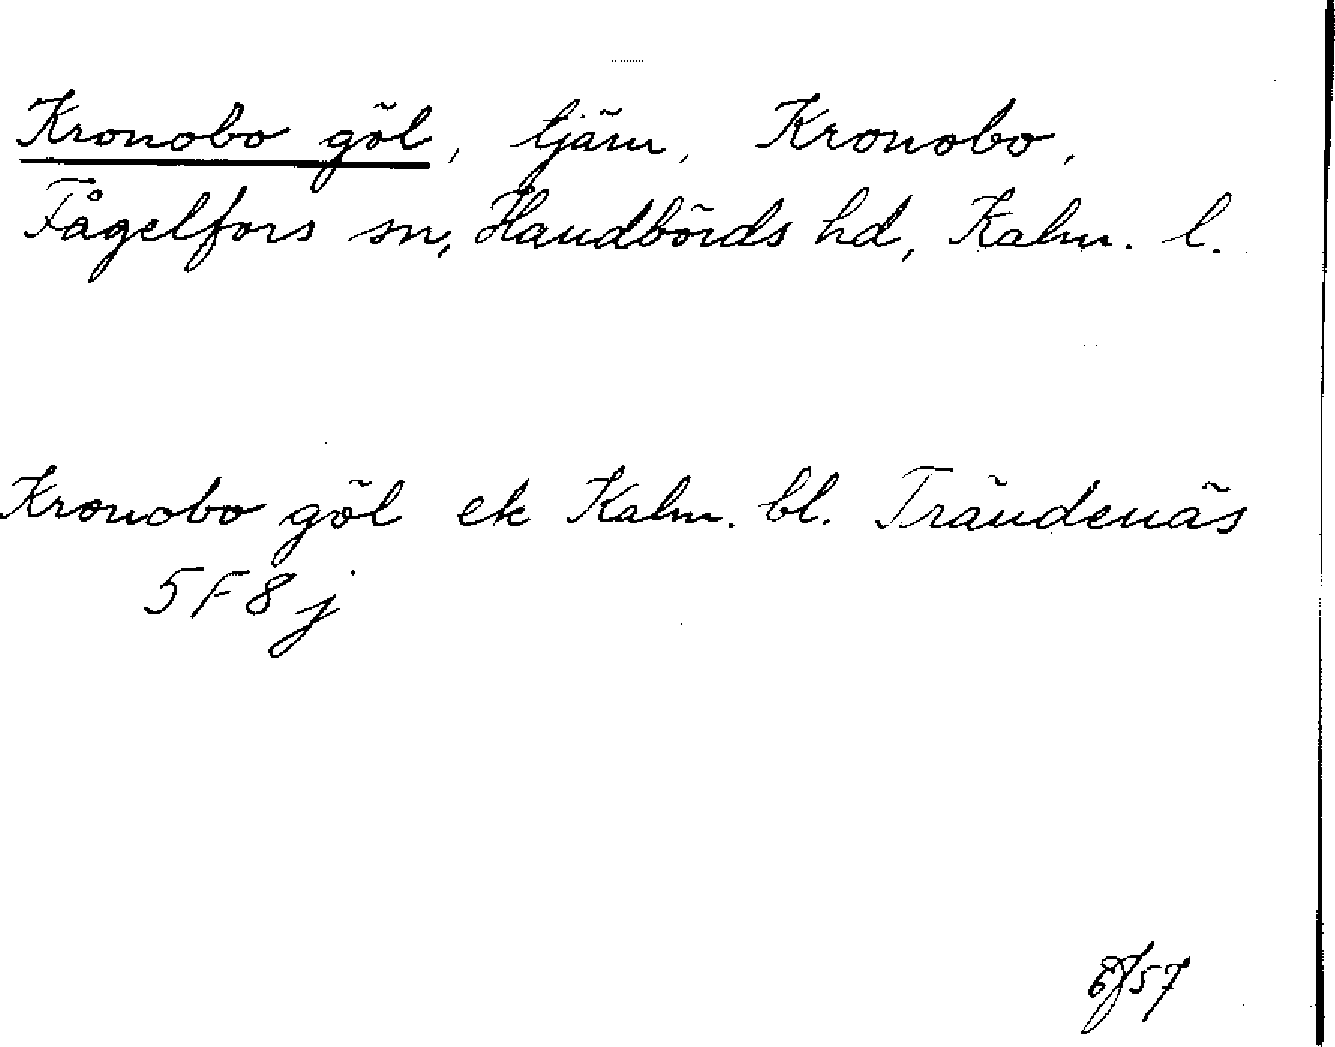 Kronobo göl, tjärn, Kronobo,
Fågelfors sn, Handbörds hd, Kalm. l.
Kronobo göl ek Kalm. bl. Trändenäs
5F8j